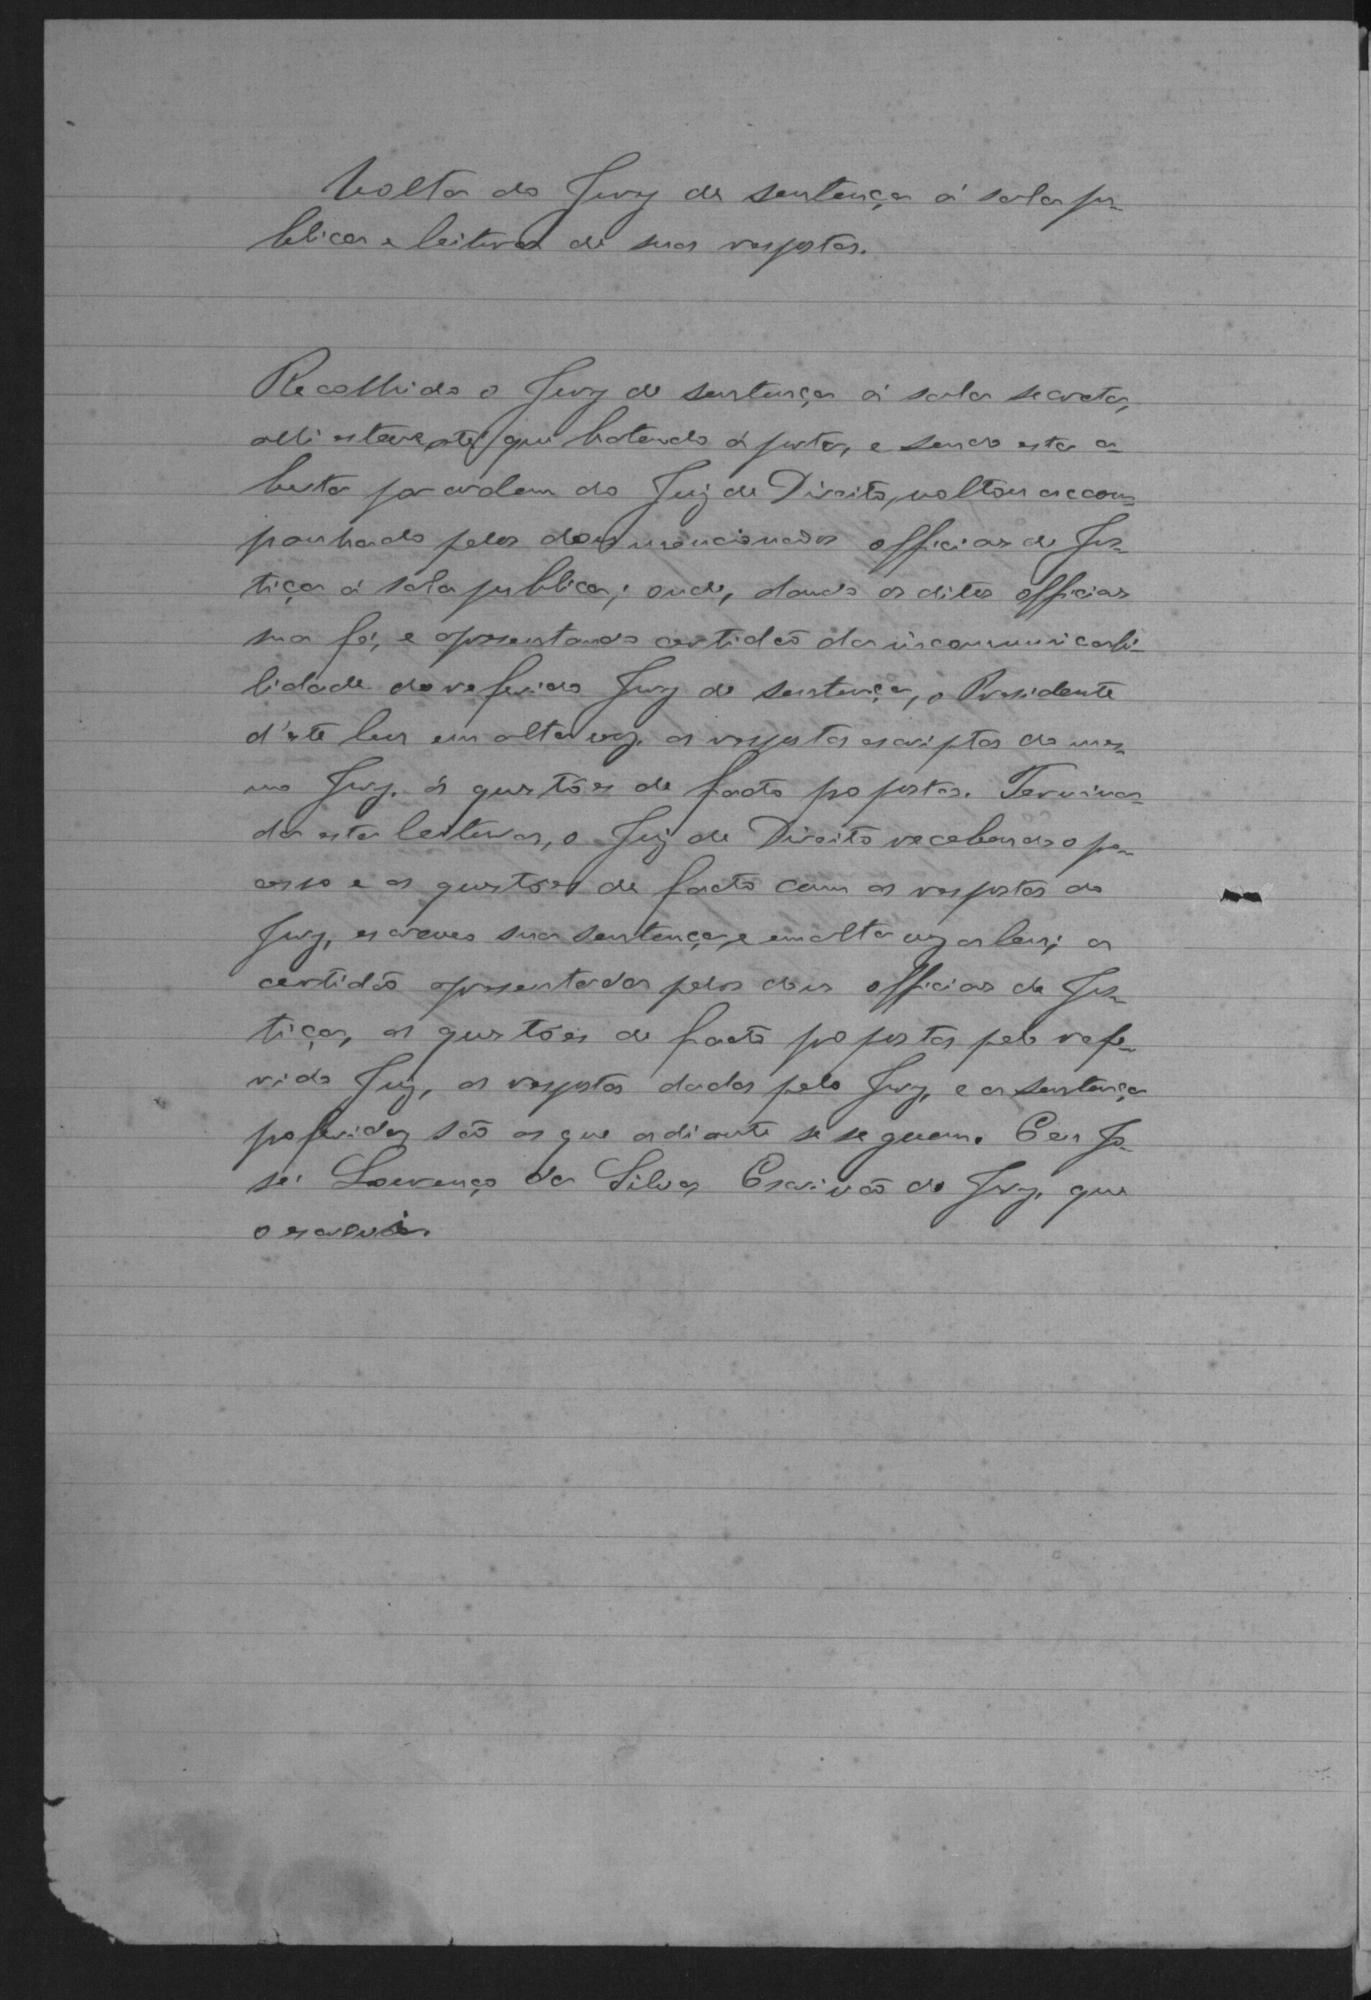 Volta do Jury de sentença á sala pu-
blica e leitura de suas respostas.
Recolhido o Jury de sentença á sala secreta,
alli esteve até que batendo á porta, e sendo esta a-
berta por ordem do Juiz de Direito, voltou accom-
panhado pelos dous mencionados officiaes de Jus-
tiça á sala publica; onde, dando os ditos officiaes
sua fé, e apresentando certidão da incommunicabi-
lidade do referido Jury de sentença, o Presidente
d'este leu em alta voz as respostas escriptas do mes-
mo Jury ás questões de facto propostas. Termina-
da esta leitura, o Juiz de Direito recebendo o pro-
cesso e as questões de facto com as respostas do
Jury, escreveu sua sentença, e em alta voz a leu; a
certidão apresentada pelos dous officiaes de Jus-
tiça, as questões de facto propostas pelo refe-
rido Juiz, as respostas dadas pelo Jury, e a sentença
proferida, são as que adiante se seguem. Eu Jo-
sé Lourenço da Silva, Escrivão do Jury, que
o escrevi.